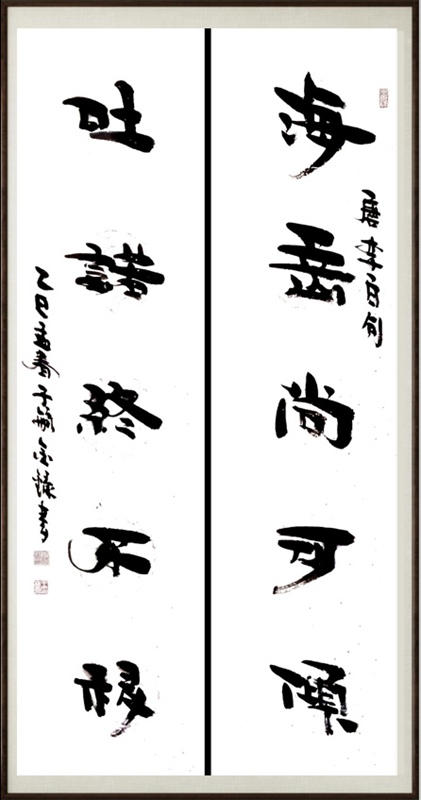 海岳尚可傾
唐李白句
吐諾終不移
乙巳孟春
書